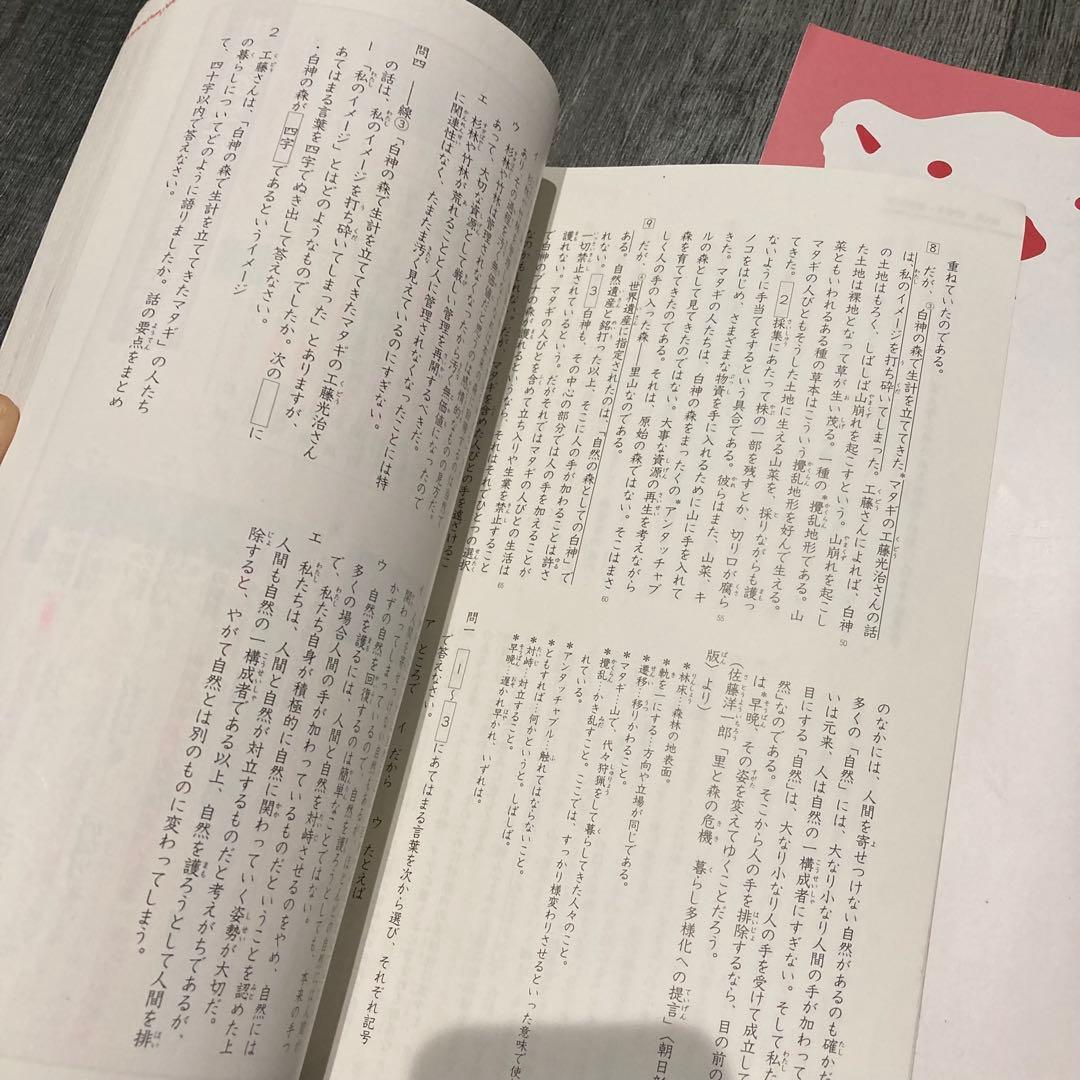 重ねていたのである。
8 だが、③白神の森で生計を立ててきた*マタギの工藤光治さんの話
は、私のイメージを打ち砕いてしまった。工藤さんによれば、白神
の土地はもろく、しばしば山崩れを起こすという。山崩れを起こし
た土地は裸地となって草が生い茂る。一種の*攪乱地形である。山
菜ともいわれるある種の草本はこういう攪乱地形を好んで生える。
マタギの人びともそうした土地に生える山菜を、採りながらも護っ
てきた。 2 採集にあたって株の一部を残すとか、切り口が腐ら
ないように手当てをするという具合である。彼らはまた、山菜、キ
ノコをはじめ、さまざまな物資を手に入れるために山に手を入れて
きた。マタギの人たちは、白神の森をまったくの*アンタッチャブ
ルの森として見てきたのではない。大事な資源の再生を考えながら
森を育ててきたのである。それは、原始の森ではない。そこはまさ
しく人の手の入った森――里山なのである。
9 だが、④世界遺産に指定されたのは、「自然の森としての白神」で
ある。自然遺産と銘打った以上、そこに人の手が加わることは許さ
れない。 3 白神も、その中心の部分では人の手を加えることが
一切禁止されているという。だがそれではマタギの人びとの生活は
護れない。マタギの人びとを含めて立ち入りや生業を禁止すること
で白神のブナの森が護れるというなら、それはそれでひとつの選択
50
55
60
65
のなかには、人間を寄せつけない自然があるのも確かだ
多くの「自然」には、大なり小なり人間の手が加わって
いは元来、人は自然の一構成者にすぎない。そして私た
目にする「自然」は、大なり小なり人の手を受けて成立して
然」なのである。そこから人の手を排除するなら、目の前の
は*早晩、その姿を変えてゆくことだろう。
(佐藤洋一郎「里と森の危機 暮らし多様化への提言」〈朝日新
版〉より)
*林床…森林の地表面。
*軌を一にする…方向や立場が同じである。
*遷移…移りかわること。
*マタギ…山で、代々狩猟をして暮らしてきた人々のこと。
*攪乱…かき乱すこと。ここでは、すっかり様変わりさせるといった意味で使
れている。
*アンタッチャブル…触れてはならないこと。
*ともすれば…何かというと。しばしば。
*対峙…対立すること。
*早晩…遅かれ早かれ、いずれは。
問一 1 〜 3 にあてはまる言葉を次から選び、それぞれ記号
で答えなさい。
ア ところで イ だから ウ たとえば
エ 杉林や竹林が荒れることと人に管理されなくなったことには特
に関連性はなく、たまたま汚く見えているのにすぎない。
問四 ――線③「白神の森で生計を立ててきたマタギの工藤光治さん
の話は、私のイメージを打ち砕いてしまった」とありますが、
1 「私のイメージ」とはどのようなものでしたか。次の に
あてはまる言葉を四字でぬき出して答えなさい。
・白神の森が 四字 であるというイメージ
2 工藤さんは、「白神の森で生計を立ててきたマタギ」の人たち
の暮らしについてどのように語りましたか。話の要点をまとめ
て、四十字以内で答えなさい。
ウ 自然を護るには、人間と自然を対峙させるのをやめ、自然には
多くの場合人間の手が加わっているものだということを認めた上
で、私たち自身が積極的に自然に関わっていく姿勢が大切だ。
エ 私たちは、人間と自然が対立するものだと考えがちであるが、
人間も自然の一構成者である以上、自然を護ろうとして人間を排
除すると、やがて自然とは別のものに変わってしまう。